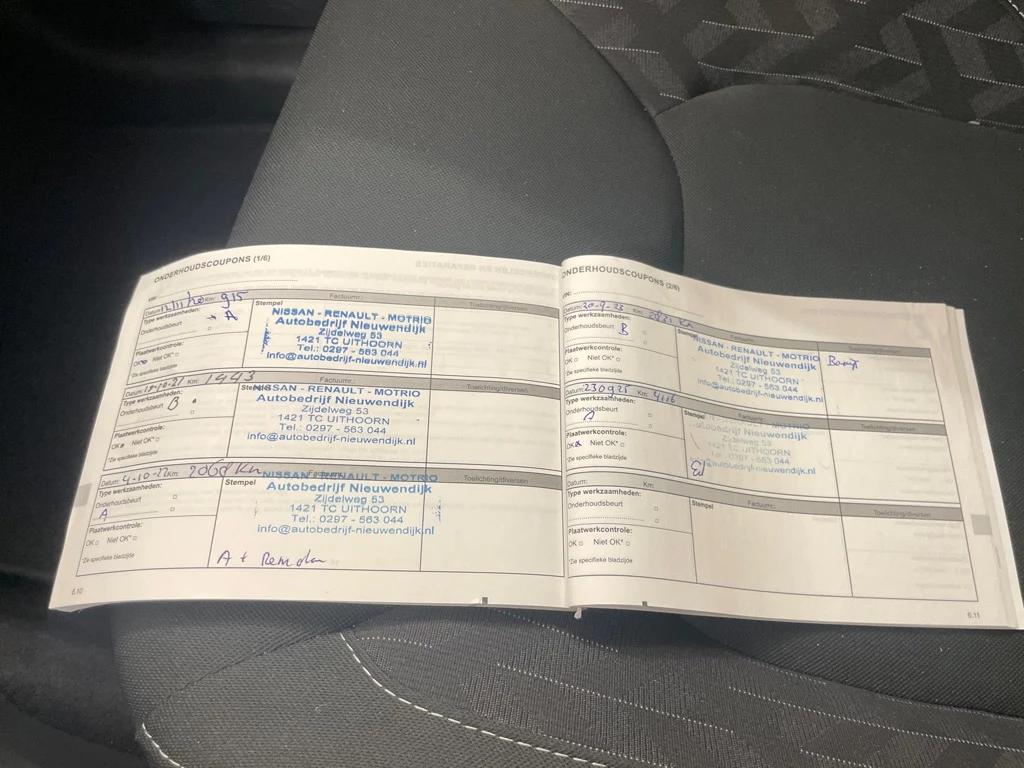 ONDERHOUDSCOUPONS (1/6)
VIN:
Datum: Km: 915 Factuurnr.: Toelichting/diversen
Type werkzaamheden: A Stempel
NISSAN - RENAULT - MOTRIO
Onderhoudsbeurt Autobedrijf Nieuwendijk
Zijdelweg 53
Plaatwerkcontrole: 1421 TC UITHOORN
OK Niet OK* Tel.: 0297 - 563 044
*Zie specifieke bladzijde info@autobedrijf-nieuwendijk.nl
Datum: Km: 1443 Factuurnr.: Toelichting/diversen
Type werkzaamheden: NISSAN - RENAULT - MOTRIO
Onderhoudsbeurt B Autobedrijf Nieuwendijk
Zijdelweg 53
Plaatwerkcontrole: 1421 TC UITHOORN
OK Niet OK* Tel.: 0297 - 563 044
*Zie specifieke bladzijde info@autobedrijf-nieuwendijk.nl
Datum: 4-10-22 Km: 2068 Km Factuurnr.: Toelichting/diversen
NISSAN - RENAULT - MOTRIO
Type werkzaamheden: Stempel Autobedrijf Nieuwendijk
Onderhoudsbeurt Zijdelweg 53
A 1421 TC UITHOORN
Plaatwerkcontrole: Tel.: 0297 - 563 044
OK Niet OK* info@autobedrijf-nieuwendijk.nl
*Zie specifieke bladzijde A +
6.10
ONDERHOUDSCOUPONS (2/6)
VIN:
Datum: Km: Km
Type werkzaamheden: Toelichting/diversen
Onderhoudsbeurt B NISSAN - RENAULT - MOTRIO
Autobedrijf Nieuwendijk
Plaatwerkcontrole: Zijdelweg 53
OK Niet OK* 1421 TC UITHOORN
Tel.: 0297 - 563 044
*Zie specifieke bladzijde info@autobedrijf-nieuwendijk.nl
Datum: 230925 Km: 4116 Factuurnr.: Toelichting/diversen
Type werkzaamheden: Stempel
Onderhoudsbeurt A Autobedrijf Nieuwendijk
Zijdelweg 53
Plaatwerkcontrole: 1421 TC UITHOORN
OK Niet OK* Tel.: 0297 - 563 044
*Zie specifieke bladzijde info@autobedrijf-nieuwendijk.nl
Datum: Km: Factuurnr.: Toelichting/diversen
Type werkzaamheden: Stempel
Onderhoudsbeurt
Plaatwerkcontrole:
OK Niet OK*
*Zie specifieke bladzijde
6.11